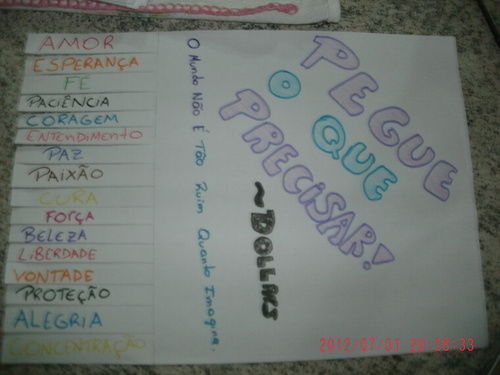 PEGUE
O QUE
PRECISAR!
~DOLLARS
O Mundo Não É Tão Ruim Quanto Imagina.
AMOR
ESPERANÇA
FÉ
PACIÊNCIA
CORAGEM
ENTENDIMENTO
PAZ
PAIXÃO
CURA
FORÇA
BELEZA
LIBERDADE
VONTADE
PROTEÇÃO
ALEGRIA
CONCENTRAÇÃO
2012/07/01 20:28:33